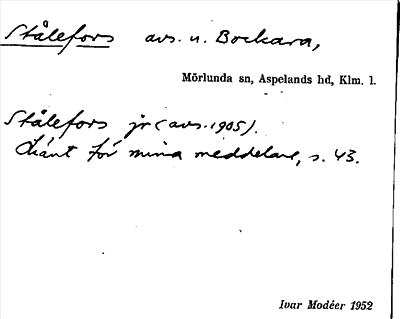 Stålefors avs. u. Bockara,
Mörlunda sn, Aspelands hd, Klm. l.
Stålefors jr (avs. 1905).
Okänt för mina meddelare, s. 43.
Ivar Modéer 1952